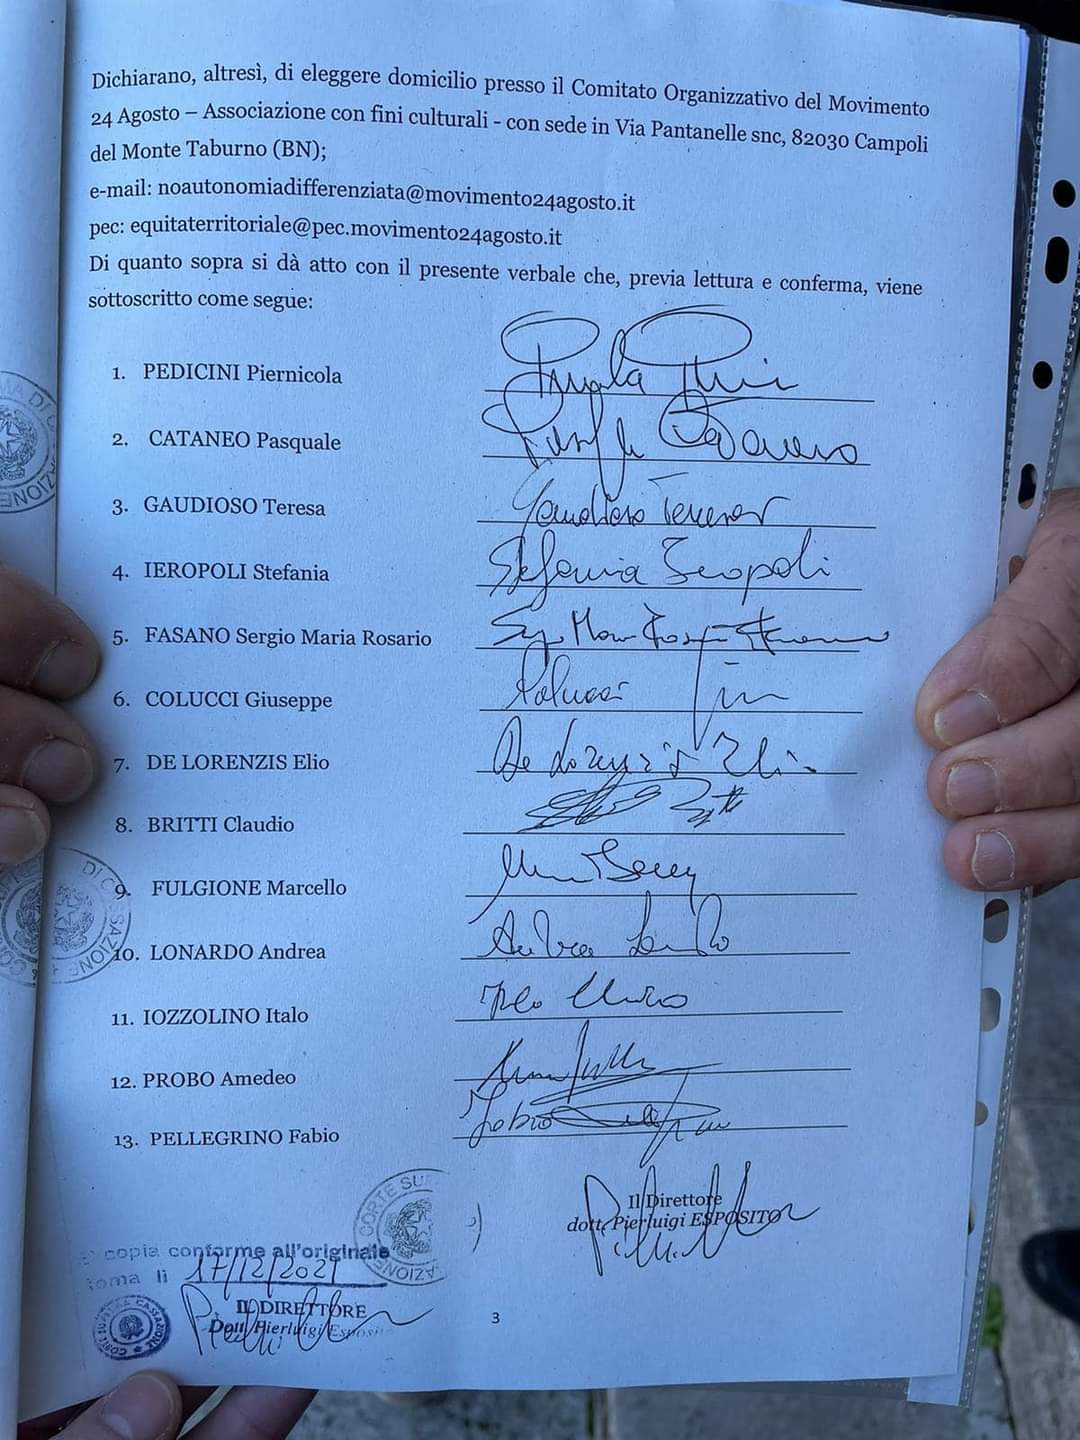 Dichiarano, altresì, di eleggere domicilio presso il Comitato Organizzativo del Movimento
24 Agosto – Associazione con fini culturali - con sede in Via Pantanelle snc, 82030 Campoli
del Monte Taburno (BN);
e-mail: noautonomiadifferenziata@movimento24agosto.it
pec: equitaterritoriale@pec.movimento24agosto.it
Di quanto sopra si dà atto con il presente verbale che, previa lettura e conferma, viene
sottoscritto come segue:
1. PEDICINI Piernicola
2. CATANEO Pasquale
3. GAUDIOSO Teresa Gaudioso Teresa
4. IEROPOLI Stefania Stefania Ieropoli
5. FASANO Sergio Maria Rosario
6. COLUCCI Giuseppe Colucci
7. DE LORENZIS Elio De Lorenzis Elio
8. BRITTI Claudio
9. FULGIONE Marcello
10. LONARDO Andrea Andrea Lonardo
11. IOZZOLINO Italo
12. PROBO Amedeo
13. PELLEGRINO Fabio Fabio
Il Direttore
dott. Pierluigi ESPOSITO
CORTE SUP
copia conforme all'originale
Roma li 17/12/2021
IL DIRETTORE
Dott. Pierluigi Esposito
CORTE SUPREMA CASSAZIONE
DI CASSAZIONE
3